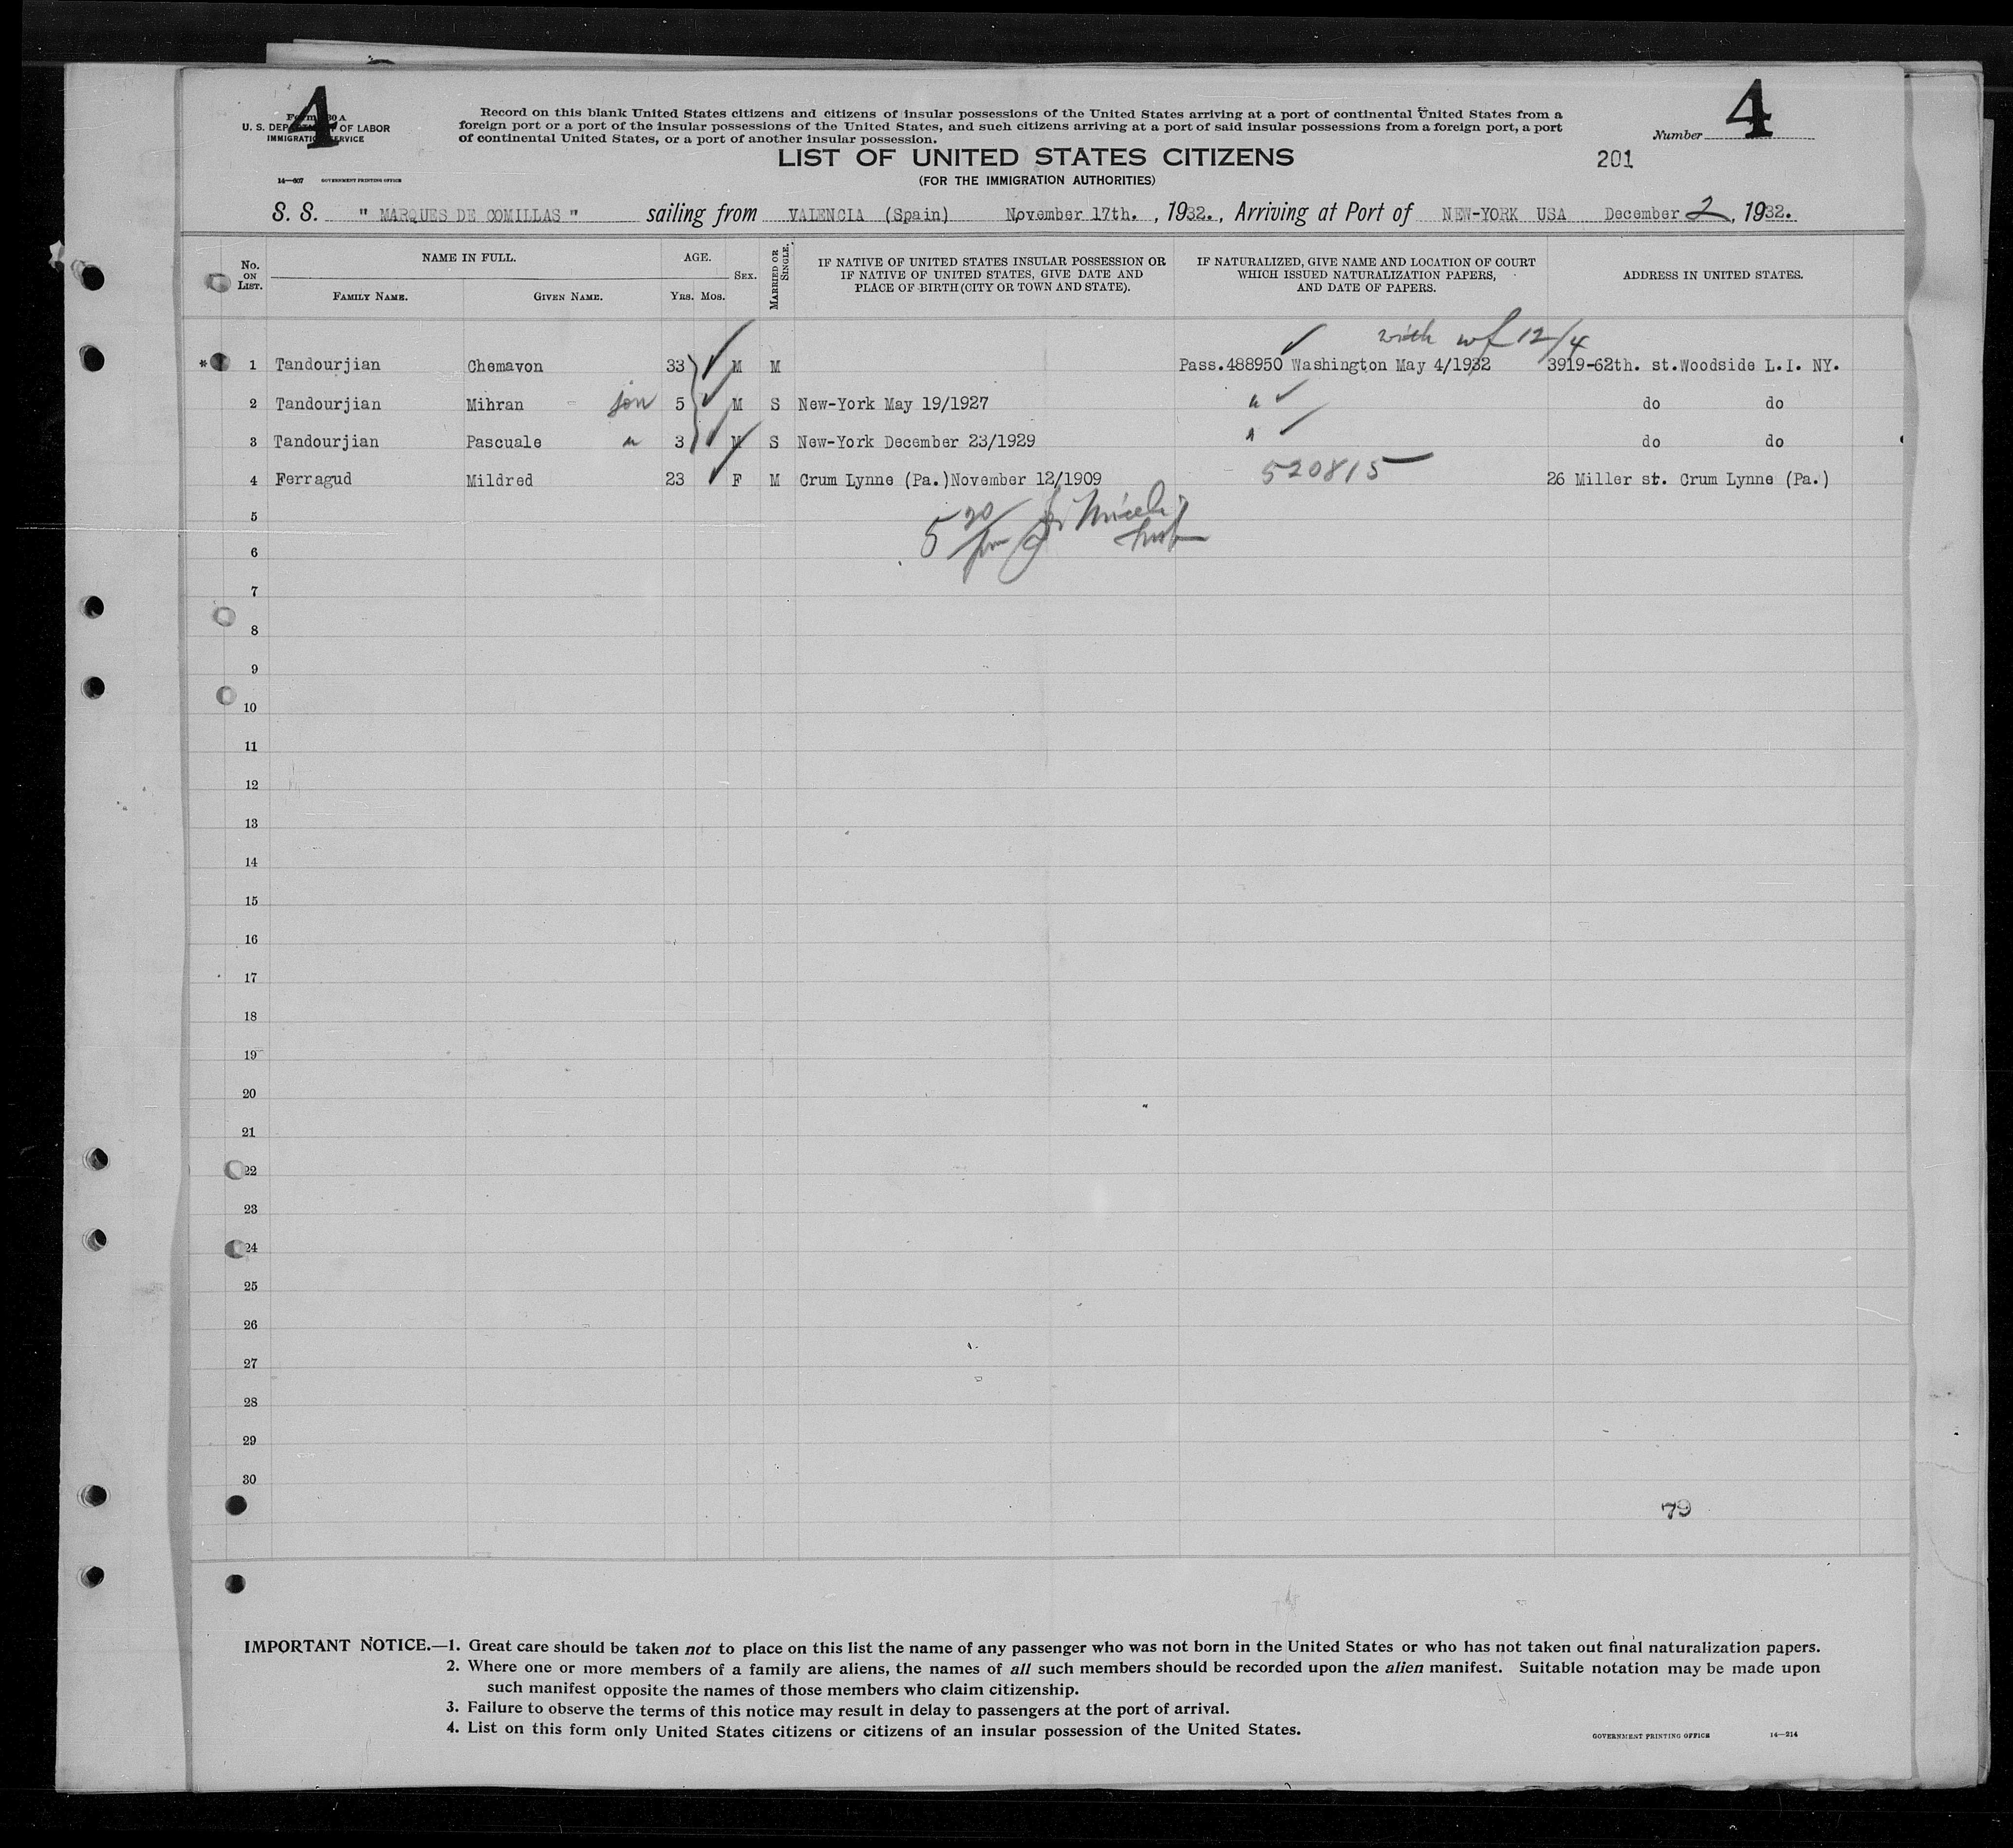 4
4
Form 630 A
U. S. DEPARTMENT OF LABOR
IMMIGRATION SERVICE
Record on this blank United States citizens and citizens of insular possessions of the United States arriving at a port of continental United States from a
foreign port or a port of the insular possessions of the United States, and such citizens arriving at a port of said insular possessions from a foreign port, a port
of continental United States, or a port of another insular possession.
Number
LIST OF UNITED STATES CITIZENS
201
(FOR THE IMMIGRATION AUTHORITIES)
14—607 GOVERNMENT PRINTING OFFICE
S. S. " MARQUES DE COMILLAS " sailing from VALENCIA (Spain) November 17th. , 1932. , Arriving at Port of NEW-YORK USA December 2 , 1932.
No. ON LIST.
NAME IN FULL.
FAMILY NAME. GIVEN NAME.
AGE.
YRS. MOS.
SEX.
MARRIED OR SINGLE.
IF NATIVE OF UNITED STATES INSULAR POSSESSION OR
IF NATIVE OF UNITED STATES, GIVE DATE AND
PLACE OF BIRTH (CITY OR TOWN AND STATE).
IF NATURALIZED, GIVE NAME AND LOCATION OF COURT
WHICH ISSUED NATURALIZATION PAPERS,
AND DATE OF PAPERS.
ADDRESS IN UNITED STATES.
with wf 12/4
* 1 Tandourjian Chemavon 33 M M Pass.488950 Washington May 4/1932 3919-62th. st.Woodside L.I. NY.
2 Tandourjian Mihran son 5 M S New-York May 19/1927 " do do
3 Tandourjian Pascuale " 3 M S New-York December 23/1929 " do do
4 Ferragud Mildred 23 F M Crum Lynne (Pa.)November 12/1909 520815 26 Miller st. Crum Lynne (Pa.)
5
5 20 pm
6
7
8
9
10
11
12
13
14
15
16
17
18
19
20
21
22
23
24
25
26
27
28
29
30
79
IMPORTANT NOTICE.—1. Great care should be taken not to place on this list the name of any passenger who was not born in the United States or who has not taken out final naturalization papers.
2. Where one or more members of a family are aliens, the names of all such members should be recorded upon the alien manifest. Suitable notation may be made upon
such manifest opposite the names of those members who claim citizenship.
3. Failure to observe the terms of this notice may result in delay to passengers at the port of arrival.
4. List on this form only United States citizens or citizens of an insular possession of the United States.
GOVERNMENT PRINTING OFFICE 14—214